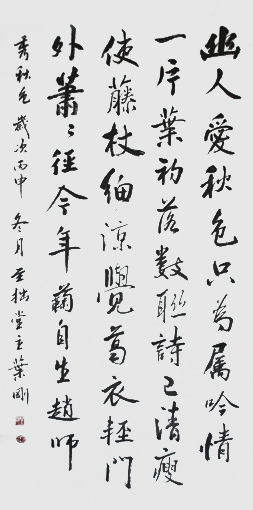 幽人愛秋色只為屬吟情
一片葉初落數聯詩已清瘦
使藤杖細涼覺葛衣輕門
外蕭〻徑今年菊自生趙師
秀秋色歲次丙申冬月拙堂主葉剛